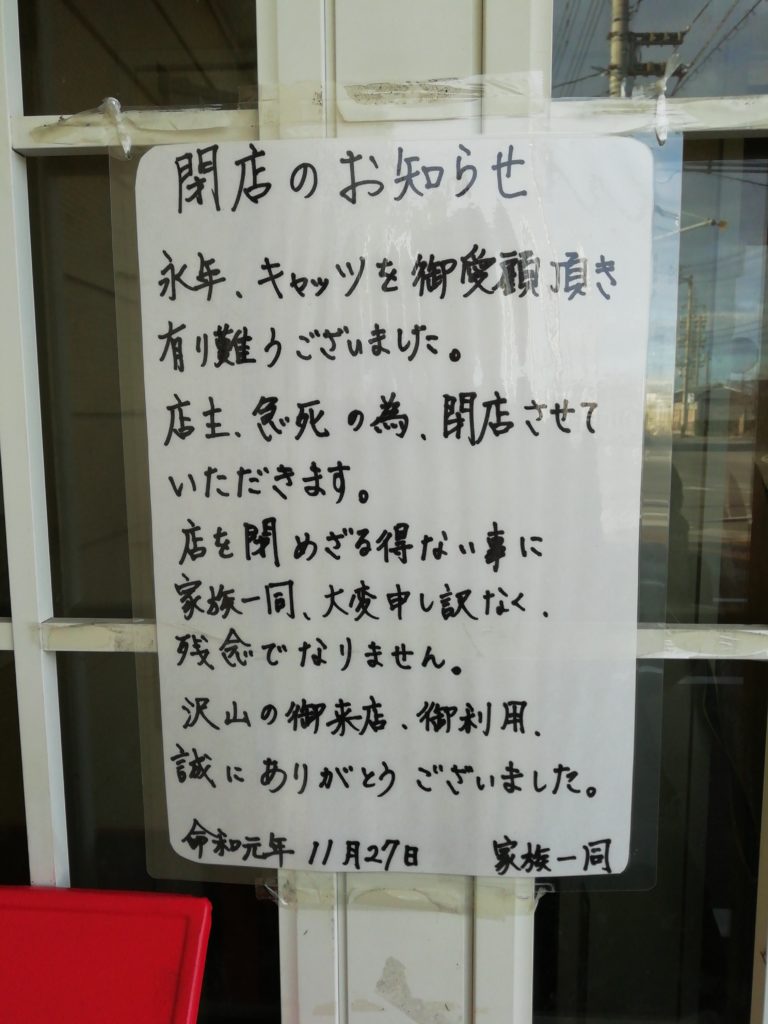 閉店のお知らせ
永年、キャッツを御愛顧頂き
有り難うございました。
店主、急死の為、閉店させて
いただきます。
店を閉めざる得ない事に
家族一同、大変申し訳なく、
残念でなりません。
沢山の御来店、御利用、
誠にありがとうございました。
令和元年 11月27日 家族一同